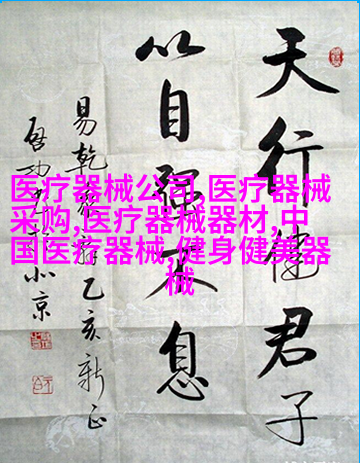 天行健君子
以自強不息
易乾 乙亥新正
啟功 北京
医疗器械公司,医疗器械
采购,医疗器械器材,中
国医疗器械,健身健美器
械